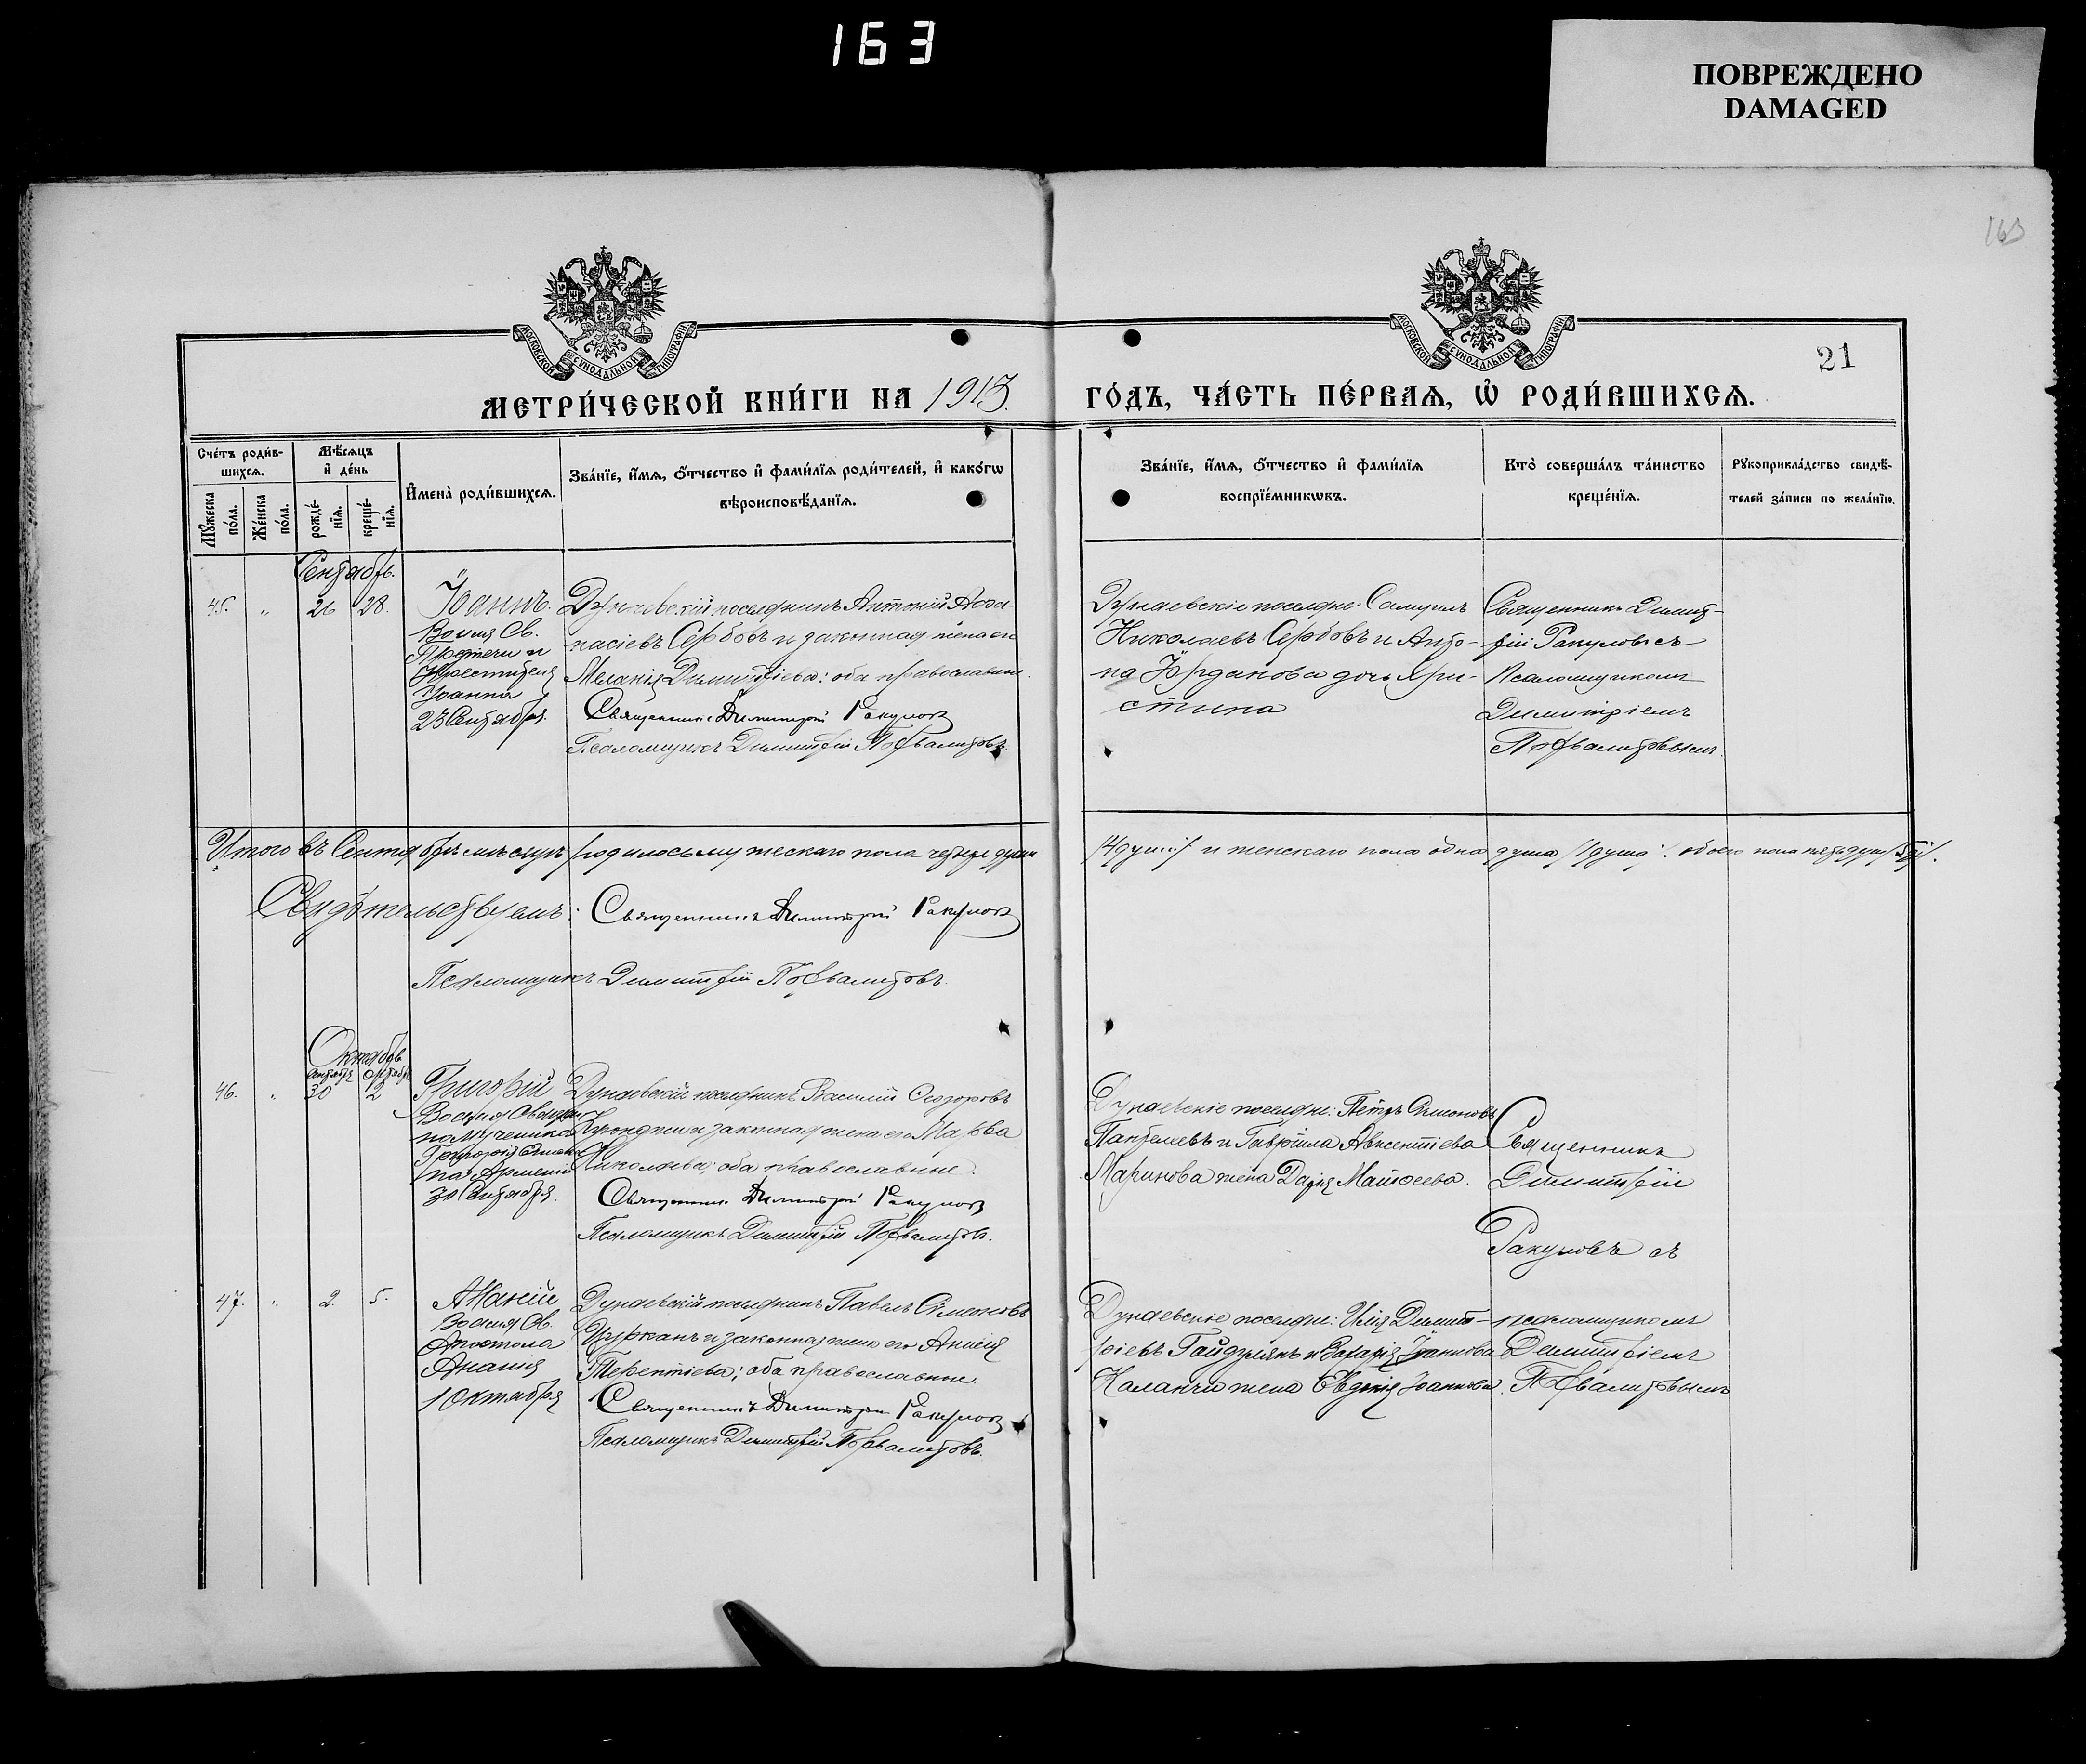 163
ПОВРЕЖДЕНО
DAMAGED
163
МОСКОВСКОЙ СѴНОДАЛЬНОЙ ТИПОГРАФІИ
МОСКОВСКОЙ СѴНОДАЛЬНОЙ ТИПОГРАФІИ
21
МЕТРИ́ЧЕСКОЙ КНИ́ГИ НА 1913.
ГО́ДЪ, ЧА́СТЬ ПЕ́РВАѦ, Ѡ҆ РОДИ́ВШИХСѦ.
Сче́тъ роди́в-
шихсѧ.
Мꙋ́жеска по́ла.
Же́нска по́ла.
Мѣ́сѧцъ
и҆ де́нь
рожде́-нїѧ.
креще́-нїѧ.
И҆мена̀ роди́вшихсѧ.
Зва́нїе, и҆́мѧ, ѻ҆́тчество и҆ фами́лїѧ роди́телей, и҆ како́гѡ
вѣ́роисповѣ́данїѧ.
Зва́нїе, и҆́мѧ, ѻ҆́тчество и҆ фами́лїѧ
воспрїе́мникѡвъ.
Кто̀ соверша́лъ та́инство
креще́нїѧ.
Рꙋкоприкла́дство свидѣ́-
телей за́писи по жела́нїю.
Сентябрь.
45. " 26 28.
Іоаннъ.
Во имя Св.
Предтечи и
Крестителя
Іоанна
23 Сентября.
Дунаевскій поселянинъ Антоній Аѳа-
насіевъ Сербовъ и законная жена его
Меланія Димитріева; оба православные.
Священникъ Димитрій Ракуловъ
Псаломщикъ Димитрій Похвалитовъ.
Дунаевскіе поселяне: Самуилъ
Николаевъ Сербовъ и Анто-
на Іорданова дочь Хри-
стина
Священникъ Димит-
рій Ракуловъ съ
Псаломщикомъ
Димитріемъ
Похвалитовымъ.
Итого въ Сентябрѣ мѣсяцѣ родилось мужескаго пола четыре души
/4 души/ и женскаго пола одна душа /1 душа/. обоего пола пять душъ /5 д/.
Свидѣтельствуемъ: Священникъ Димитрій Ракуловъ
Псаломщикъ Димитрій Похвалитовъ.
Октябрь
Сентября Октября
46. " 30 2
Григорій
Во имя Священно
мученика
Григорія Еписк.
на Арменіи
30 Сентября.
Дунаевскій поселянинъ Василій Ѳеодоровъ
Куюнджи и законная жена его Марѳа
Николаева; оба православные.
Священникъ Димитрій Ракуловъ
Псаломщикъ Димитрій Похвалитовъ.
Дунаевскіе поселяне: Петръ Симеоновъ
Пантелеевъ и Гавріила Авксентіева
Маринова жена Дарія Маѳѳеева.
Священникъ
Димитрій
Ракуловъ съ
47. " 2. 5.
Ананій
Во имя Св.
Апостола
Ананія
1 Октября
Дунаевскій поселянинъ Павелъ Симеоновъ
Цурканъ и законная жена его Анисія
Терентіева; оба православные.
Священникъ Димитрій Ракуловъ
Псаломщикъ Димитрій Похвалитовъ.
Дунаевскіе поселяне: Илія Димит-
ріевъ Гайдулянъ и Захарія Іоаннова
Каланчи жена Евдокія Іоаннова.
псаломщикомъ
Димитріемъ
Похвалитовымъ